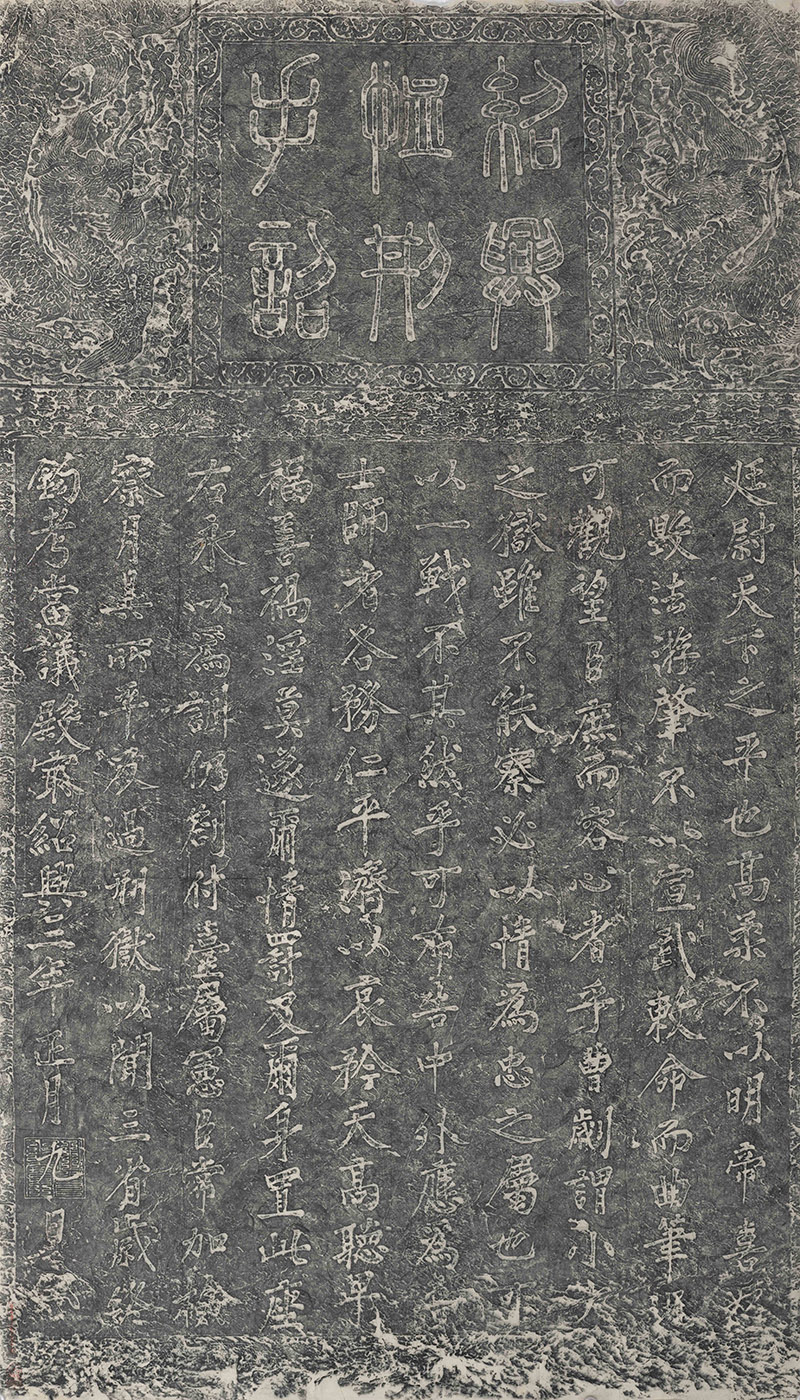 紹興
恤刑
手詔
廷尉天下之平也高柔不以明帝喜怒
而毀法游肇不以宣武敕命而曲筆況
可觀望臣庶而容心者乎曹劌謂小大
之獄雖不能察必以情為忠之屬也可
以一戰不其然乎可布告中外應為
士師者各務仁平濟以哀矜天高聽卑
福善禍淫莫遂爾情罰及爾身置此座
右永以為訓仍劄付臺屬憲臣常加檢
察月具所平反過刑獄以聞三省歲終
鉤考當議殿最紹興三年正月九日